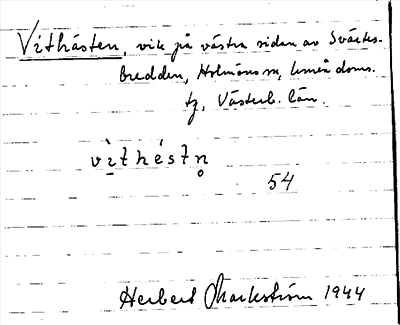 Vithästen, vik på västra sidan av Svartes-
bredden, Holmöns sn, Umeå doms.
tg, Västerb. län.
vìthéstn̥
54
Herbert Markström 1944